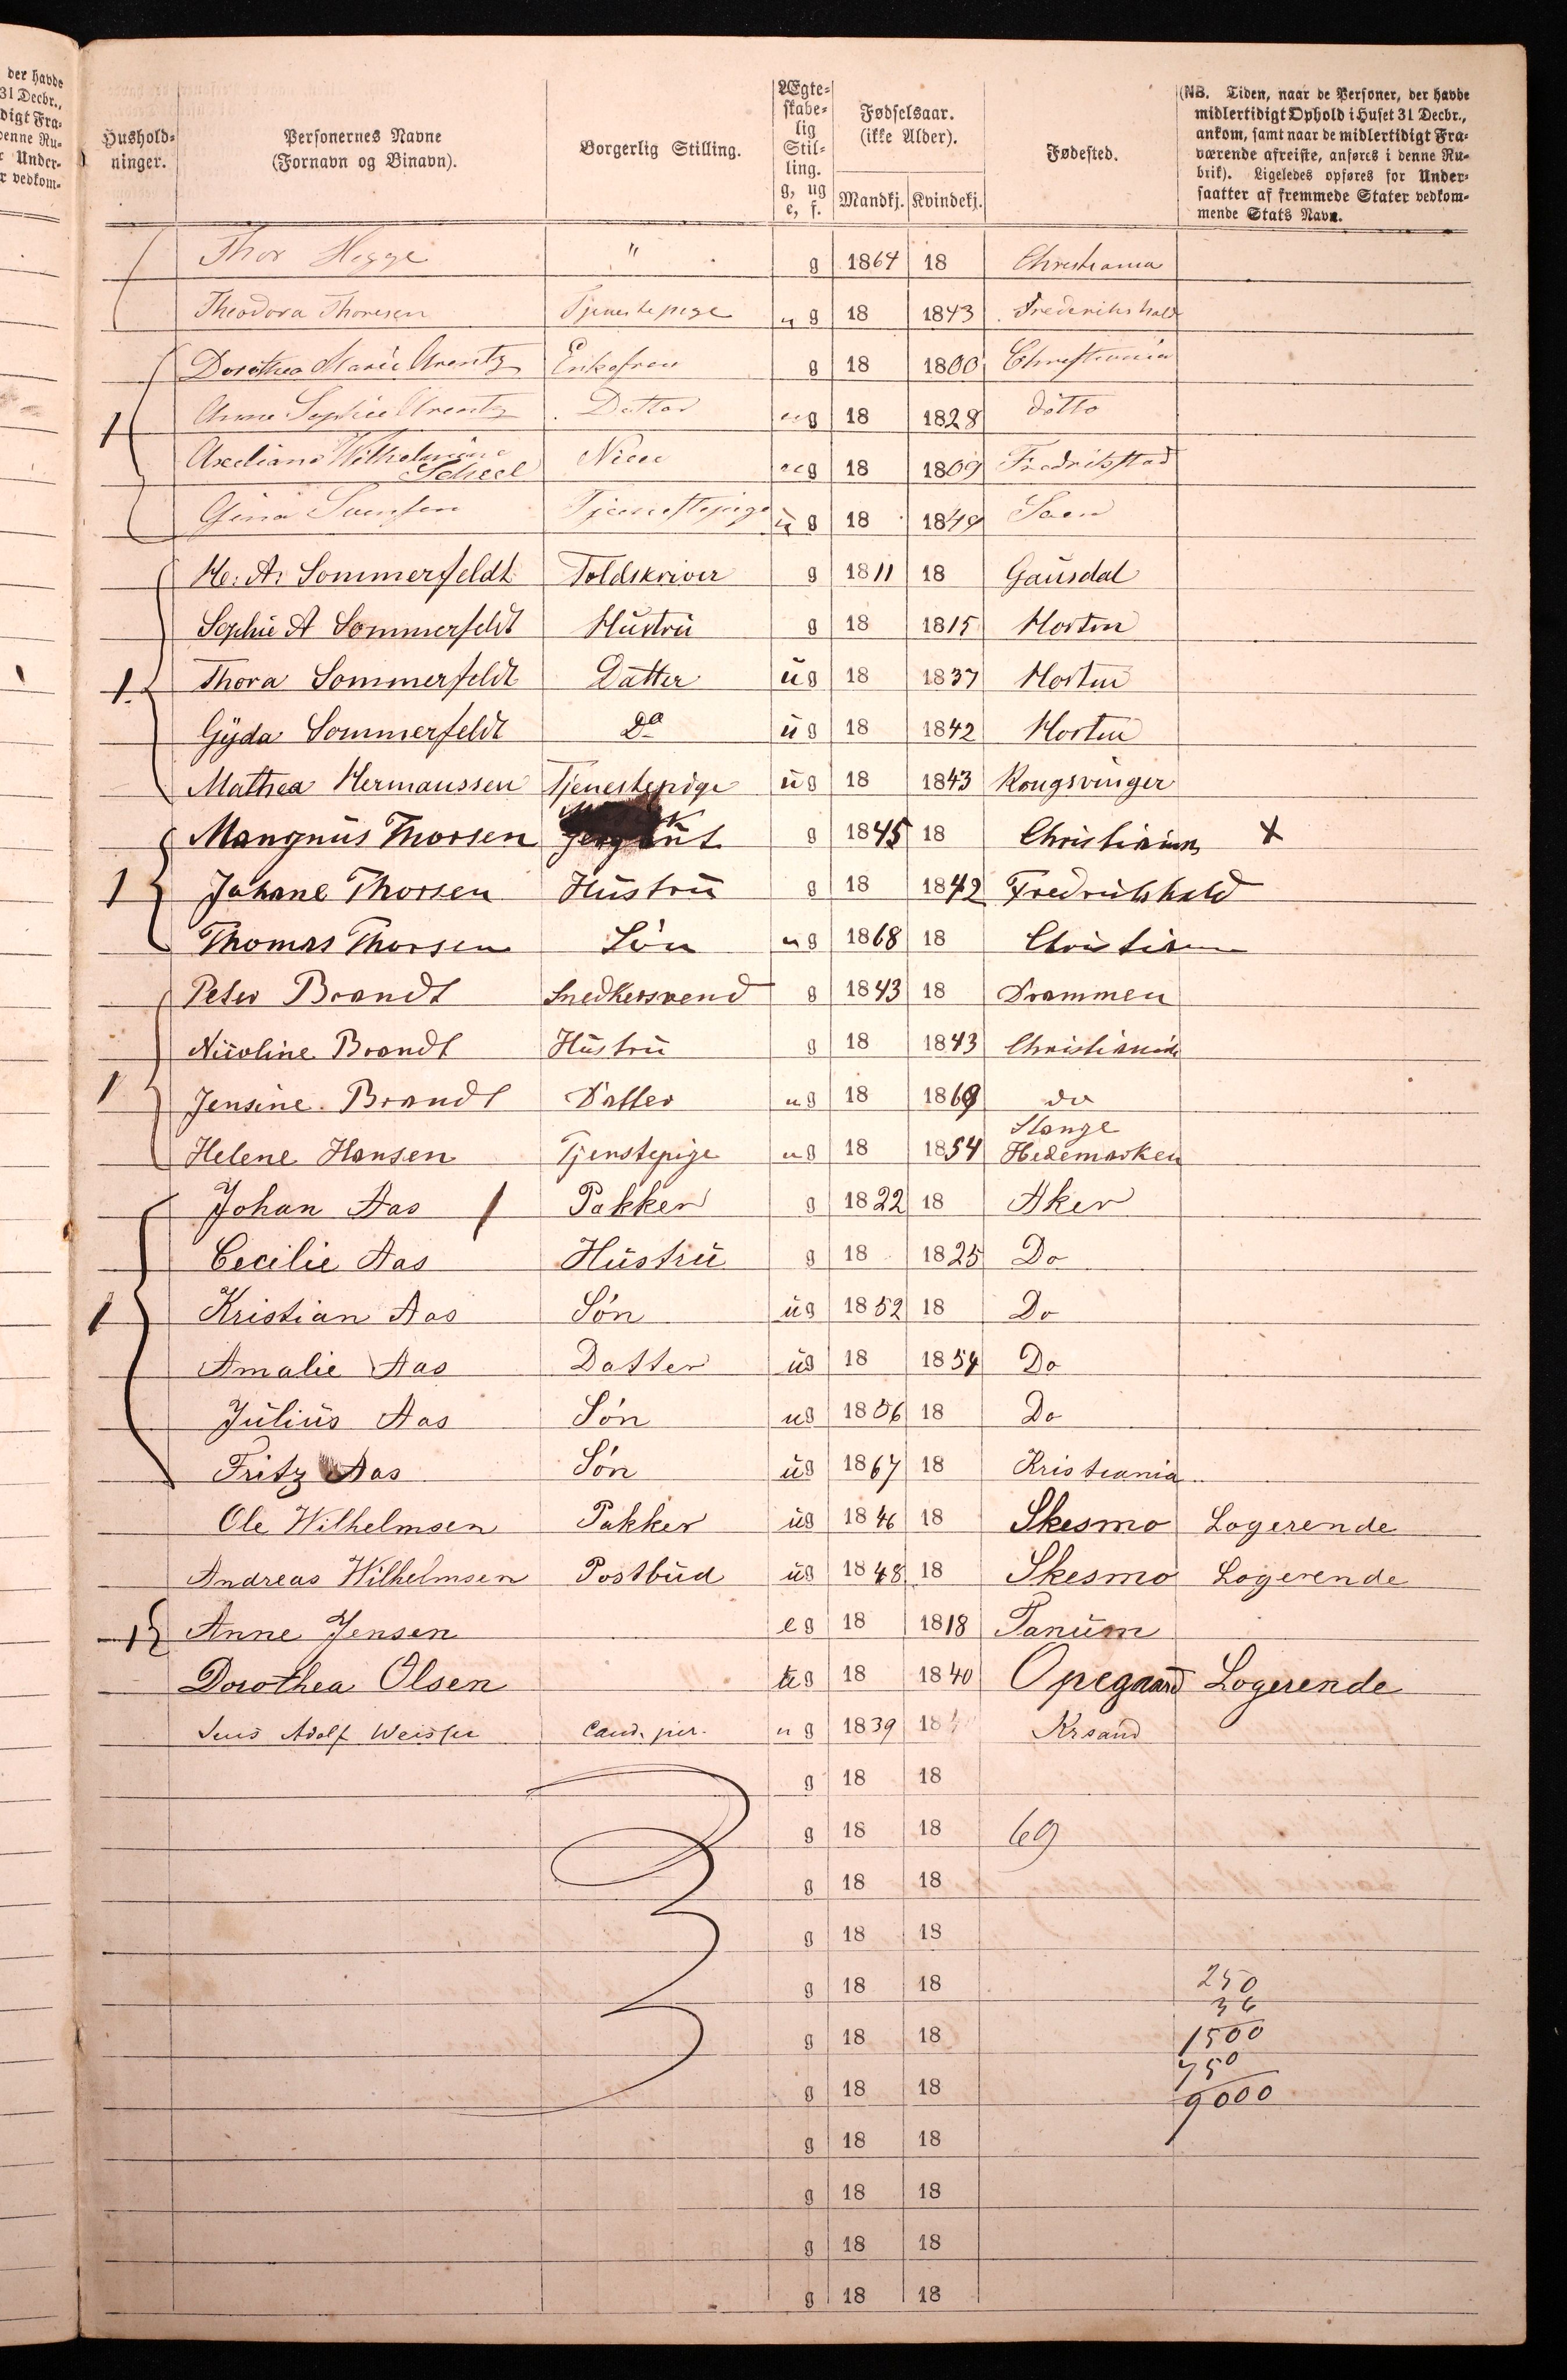 der havde
31 Decbr.,
digt Fra-
denne Ru-
r Under-
r vedkom-
Hushold-
ninger.
Personernes Navne
(Fornavn og Binavn).
Borgerlig Stilling.
Ægte-
skabe-
lig
Stil-
ling.
g, ug
e, f.
Fødselsaar.
(ikke Alder).
Mandkj. Kvindekj.
Fødested.
(NB. Tiden, naar de Personer, der havde
midlertidigt Ophold i Huset 31 Decbr.,
ankom, samt naar de midlertidigt Fra-
værende afreiste, anføres i denne Ru-
brik). Ligeledes opføres for Under-
saatter af fremmede Stater vedkom-
mende Stats Navn.
Thor Hegge " g 1864 18 Christiania
Theodora Thoresen Tjenestepige ug 18 1843 Frederikshald
Dorothea Marie Arentz Enkefrou g 18 1800 Christiania
1 Anne Sophie Arentz Datter ug 18 1828 ditto
Axeliane Wilhelmine
Scheel Niece ug 18 1809 Fredrikstad
Gina Svensen Tjenestepige ug 18 1849 Soon
H. A. Sommerfeldt Toldskriver g 1811 18 Gausdal
Sophie A Sommerfeldt Hustru g 18 1815 Horten
1. Thora Sommerfeldt Datter ug 18 1837 Horten
Gyda Sommerfeldt Do ug 18 1842 Horten
Mathea Hermanssen Tjenestepige ug 18 1843 Kongsvinger
Mangnus Thorsen g 1845 18 Christiania x
1 Johane Thorsen Hustru g 18 1842 Fredrikshald
Thomas Thorsen Søn ug 1868 18 Christiania
Peter Brandt Snedkersvend g 1843 18 Drammen
Nicoline Brandt Hustru g 18 1843 Christiania
1 Jensine Brandt Datter ug 18 1869 do
Stange
Helene Hansen Tjenstepige ug 18 1854 Hedemarken
Johan Aas / Pakker g 1822 18 Aker
Cecilie Aas Hustru g 18 1825 Do
1 Kristian Aas Søn ug 1852 18 Do
Amalie Aas Datter ug 18 1854 Do
Julius Aas Søn ug 1856 18 Do
Fritz Aas Søn ug 1867 18 Kristiania
Ole Wilhelmsen Pakker ug 1846 18 Skesmo Logerende
Andreas Wilhelmsen Postbud ug 1848 18 Skesmo Logerende
1 Anne Jensen eg 18 1818 Tanum
Dorothea Olsen ug 18 1840 Opegaard Logerende
Jens Adolf cand. jur. ug 1839 18 Krsand
g 18 18
g 18 18 69
g 18 18
g 18 18
g 18 18 250
36
g 18 18 1500
750
g 18 18 9000
g 18 18
g 18 18
g 18 18
g 18 18